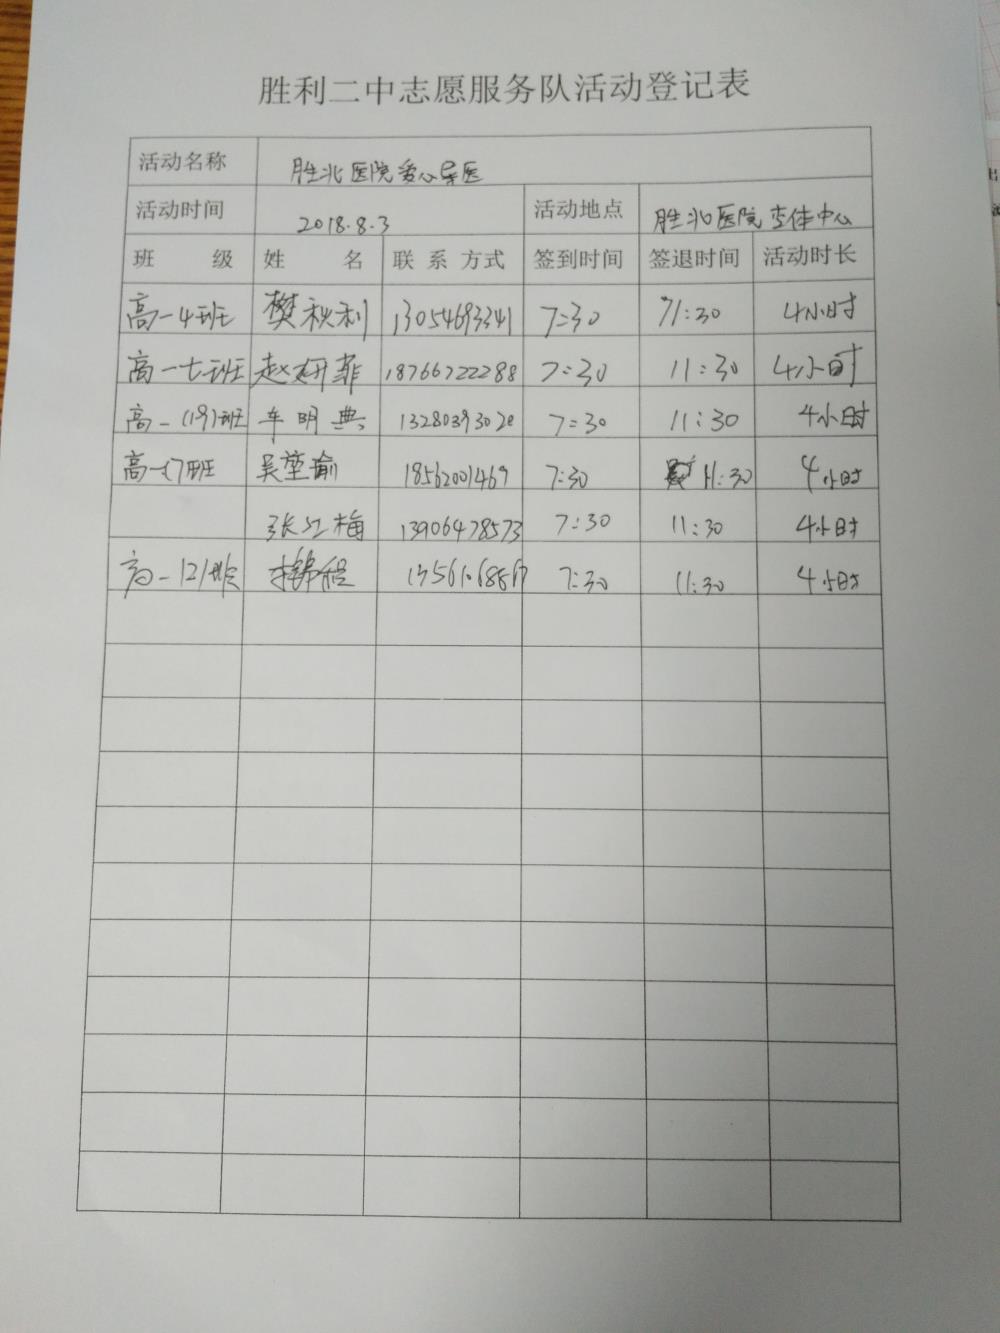 胜利二中志愿服务队活动登记表
活动名称 胜北医院爱心导医
活动时间 2018.8.3 活动地点 胜北医院查体中心
班 级 姓 名 联系方式 签到时间 签退时间 活动时长
高一4班 樊秋利 13054693341 7:30 11:30 4小时
高一七班 赵妍菲 18766722288 7:30 11:30 4小时
高一(19)班 车明典 13280393020 7:30 11:30 4小时
高一17班 吴堃瑜 18562001469 7:30 11:30 4小时
张江梅 13906478573 7:30 11:30 4小时
高一12班 7:30 11:30 4小时